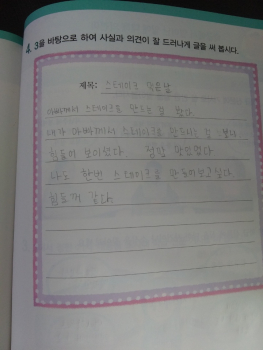 4. 3을 바탕으로 하여 사실과 의견이 잘 드러나게 글을 써 봅시다.
제목: 스테이크 먹은날
아빠께서 스테이크를 만드는 걸 봤다
내가 아빠께서 스테이크를 만드시는 걸 보니
힘들어 보이셨다 정말 맛있었다
나도 한번 스테이크를 만들어보고싶다
힘들꺼 같다.